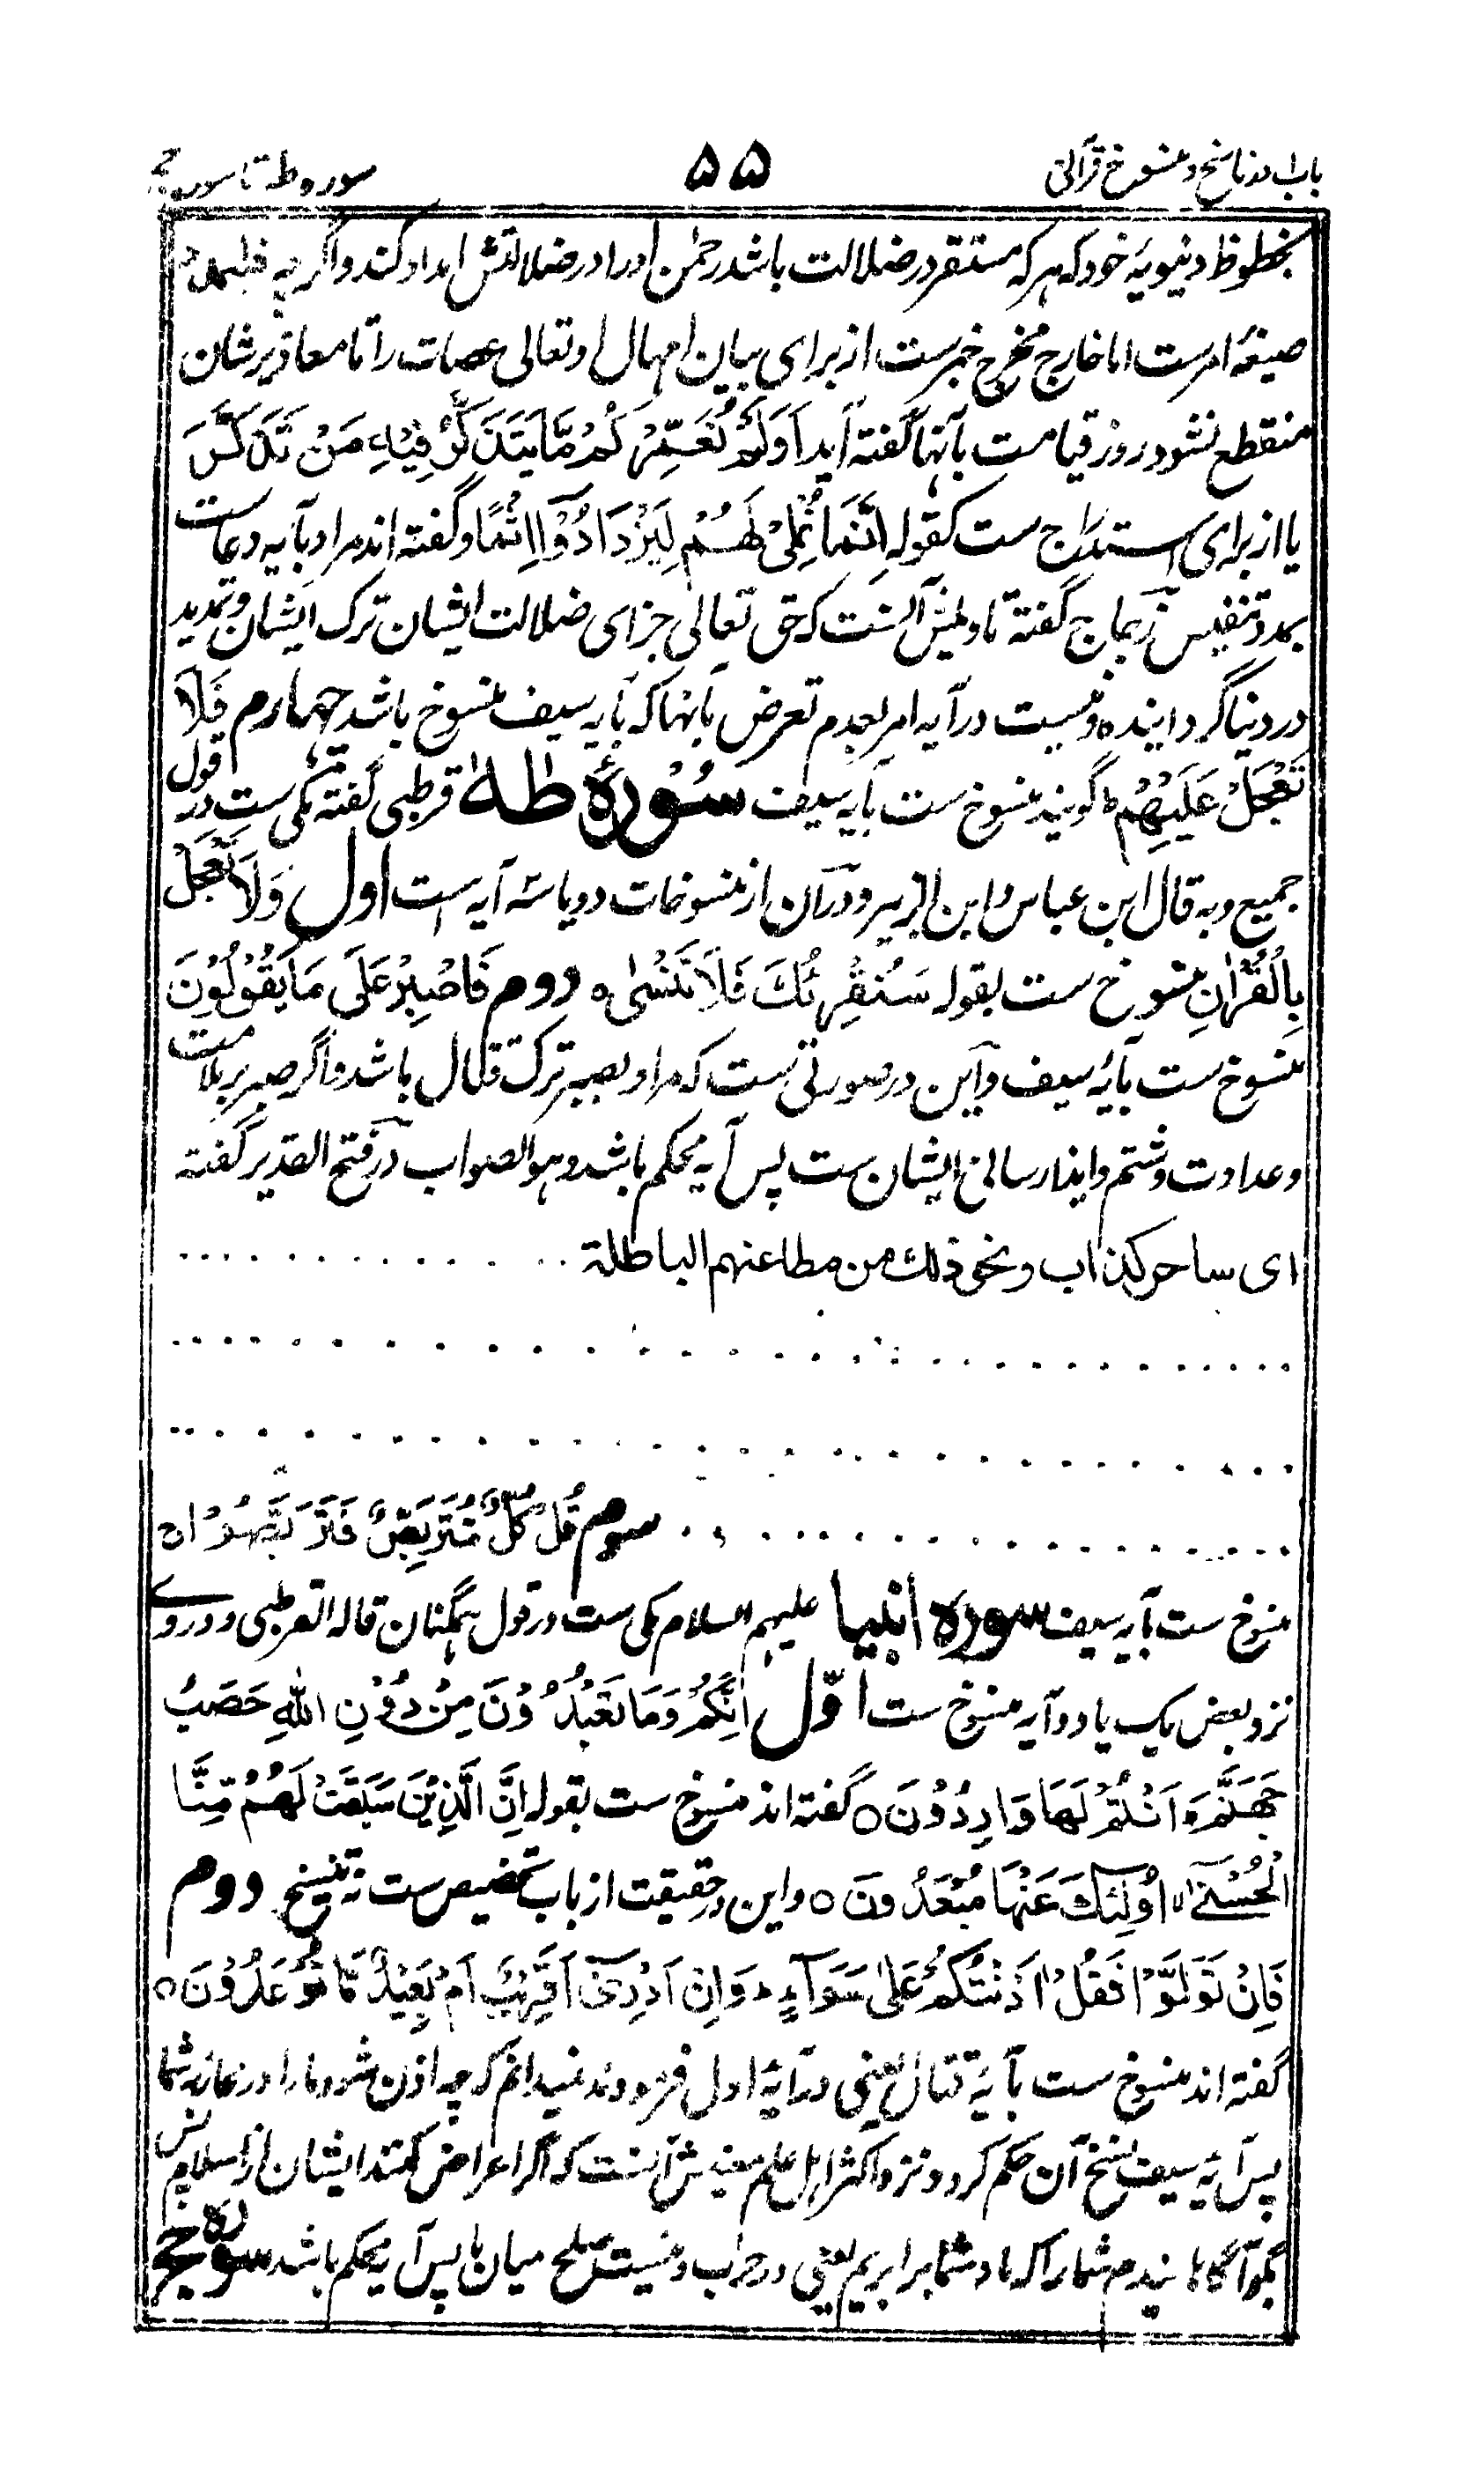 باب اول در ناسخ و منسوخ قرآنی ۵۵ سوره طه تا سوره حج
بحظوظ دنیویهٔ خود که هر که مستقر در ضلالت باشد رحمن او را در ضلالتش امداد کند و اگرچه فلیمدد
صیغهٔ امرست اما خارج مخرج خبرست از برای بیان امهال او تعالی عصات را تا معاذیر شان
منقطع نشود روز قیامت بآنها گفته آید اَوَلَمْ نُعَمِّرْكُمْ مَّا يَتَذَكَّرُ فِيْهِ مَنْ تَذَكَّرَ
یا از برای استدراج ست کقوله اِنَّمَا نُمْلِيْ لَهُمْ لِيَزْدَادُوْٓا اِثْمًا و گفته اند مراد بآیه دعاست
بمد و تنفیس زجاج گفته تاویلش آنست که حق تعالی جزای ضلالت ایشان ترک ایشان و تمدید
در دنیا گردانیده و نیست در آیه امر بعدم تعرض بآنها که بآیه سیف منسوخ باشد چهارم فَلَا
تَعْجَلْ عَلَيْهِمْ گویند منسوخ ست بآیه سیف سُوْرَهٔ طٰهٰ قرطبی گفته مکی ست در قول
جمیع و به قال ابن عباس و ابن الزبیر و در آن از منسوخات دو یا سه آیه است اول وَلَا تَعْجَلْ
بِالْقُرْاٰنِ منسوخ ست بقوله سَنُقْرِئُكَ فَلَا تَنْسٰى ہ دوم فَاصْبِرْ عَلَى مَا يَقُوْلُوْنَ
منسوخ ست بآیهٔ سیف و این در صورتی ست که مراد بصبر ترک قتال باشد و اگر صبر بر ملامت
و عداوت و شتم و ایذا رسانی ایشان ست پس آیه محکم باشد و هو الصواب در فتح القدیر گفته
ای ساحر کذاب و نحو ذلك من مطاعنهم الباطلة . . . . . . . . . .
. . . . . . . . . . . . . . . . . . . .
. . . . . . . . . . . . . . . . . . . .
. . . . . . . . . . . . سوم قُلْ كُلٌّ مُّتَرَبِّصٌ فَتَرَبَّصُوْا ہ
منسوخ ست بآیه سیف سوره انبیا علیهم السلام مکی ست در قول همگنان قاله القرطبی و در وے
نزد بعض یک یا دو آیه منسوخ ست اوّل اِنَّكُمْ وَمَا تَعْبُدُوْنَ مِنْ دُوْنِ اللهِ حَصَبُ
جَهَنَّمَ اَنْتُمْ لَهَا وَارِدُوْنَ ○ گفته اند منسوخ ست بقوله اِنَّ الَّذِيْنَ سَبَقَتْ لَهُمْ مِّنَّا
الْحُسْنٰى اُولٰٓئِكَ عَنْهَا مُبْعَدُوْنَ ○ و این در حقیقت از باب تخصیص ست نه تنسیخ دوم
فَاِنْ تَوَلَّوْا فَقُلْ اٰذَنْتُكُمْ عَلٰى سَوَآءٍ وَاِنْ اَدْرِيْٓ اَقَرِيْبٌ اَمْ بَعِيْدٌ مَّا تُوْعَدُوْنَ ○
گفته اند منسوخ ست بآیهٔ قتال یعنی در آیهٔ اول فرمودند نمیدانم که چه اذن شود ما را در محاربه شما
پس آیهٔ سیف نسخ آن حکم کرد و نزد اکثر اهل علم معنیش آنست که اگر اعراض کنند ایشان از اسلام پس
بگو آگاهانیدم شما را که ما و شما برابریم یعنی در حرب و نیست صلح میان ما پس آیه محکم باشد سوره حج